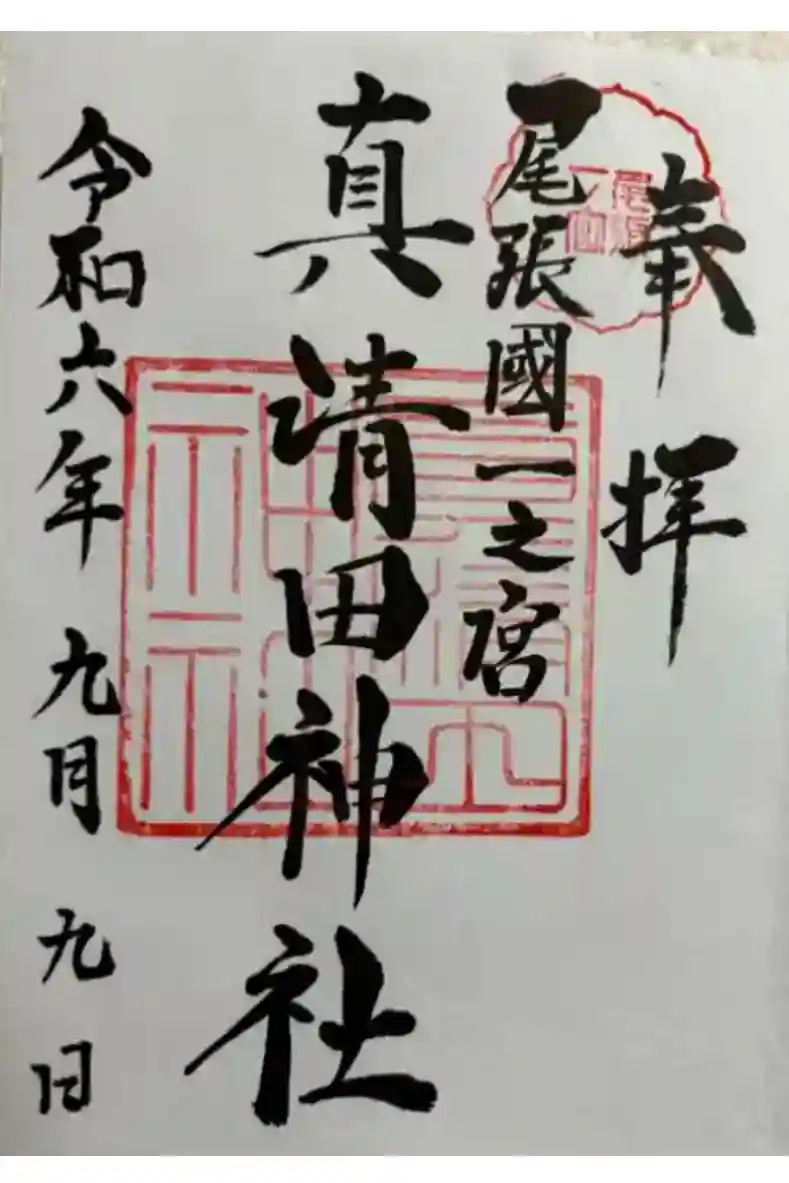 奉拝
尾張國一之宮
真清田神社
令和六年 九月 九日
尾張
一宮